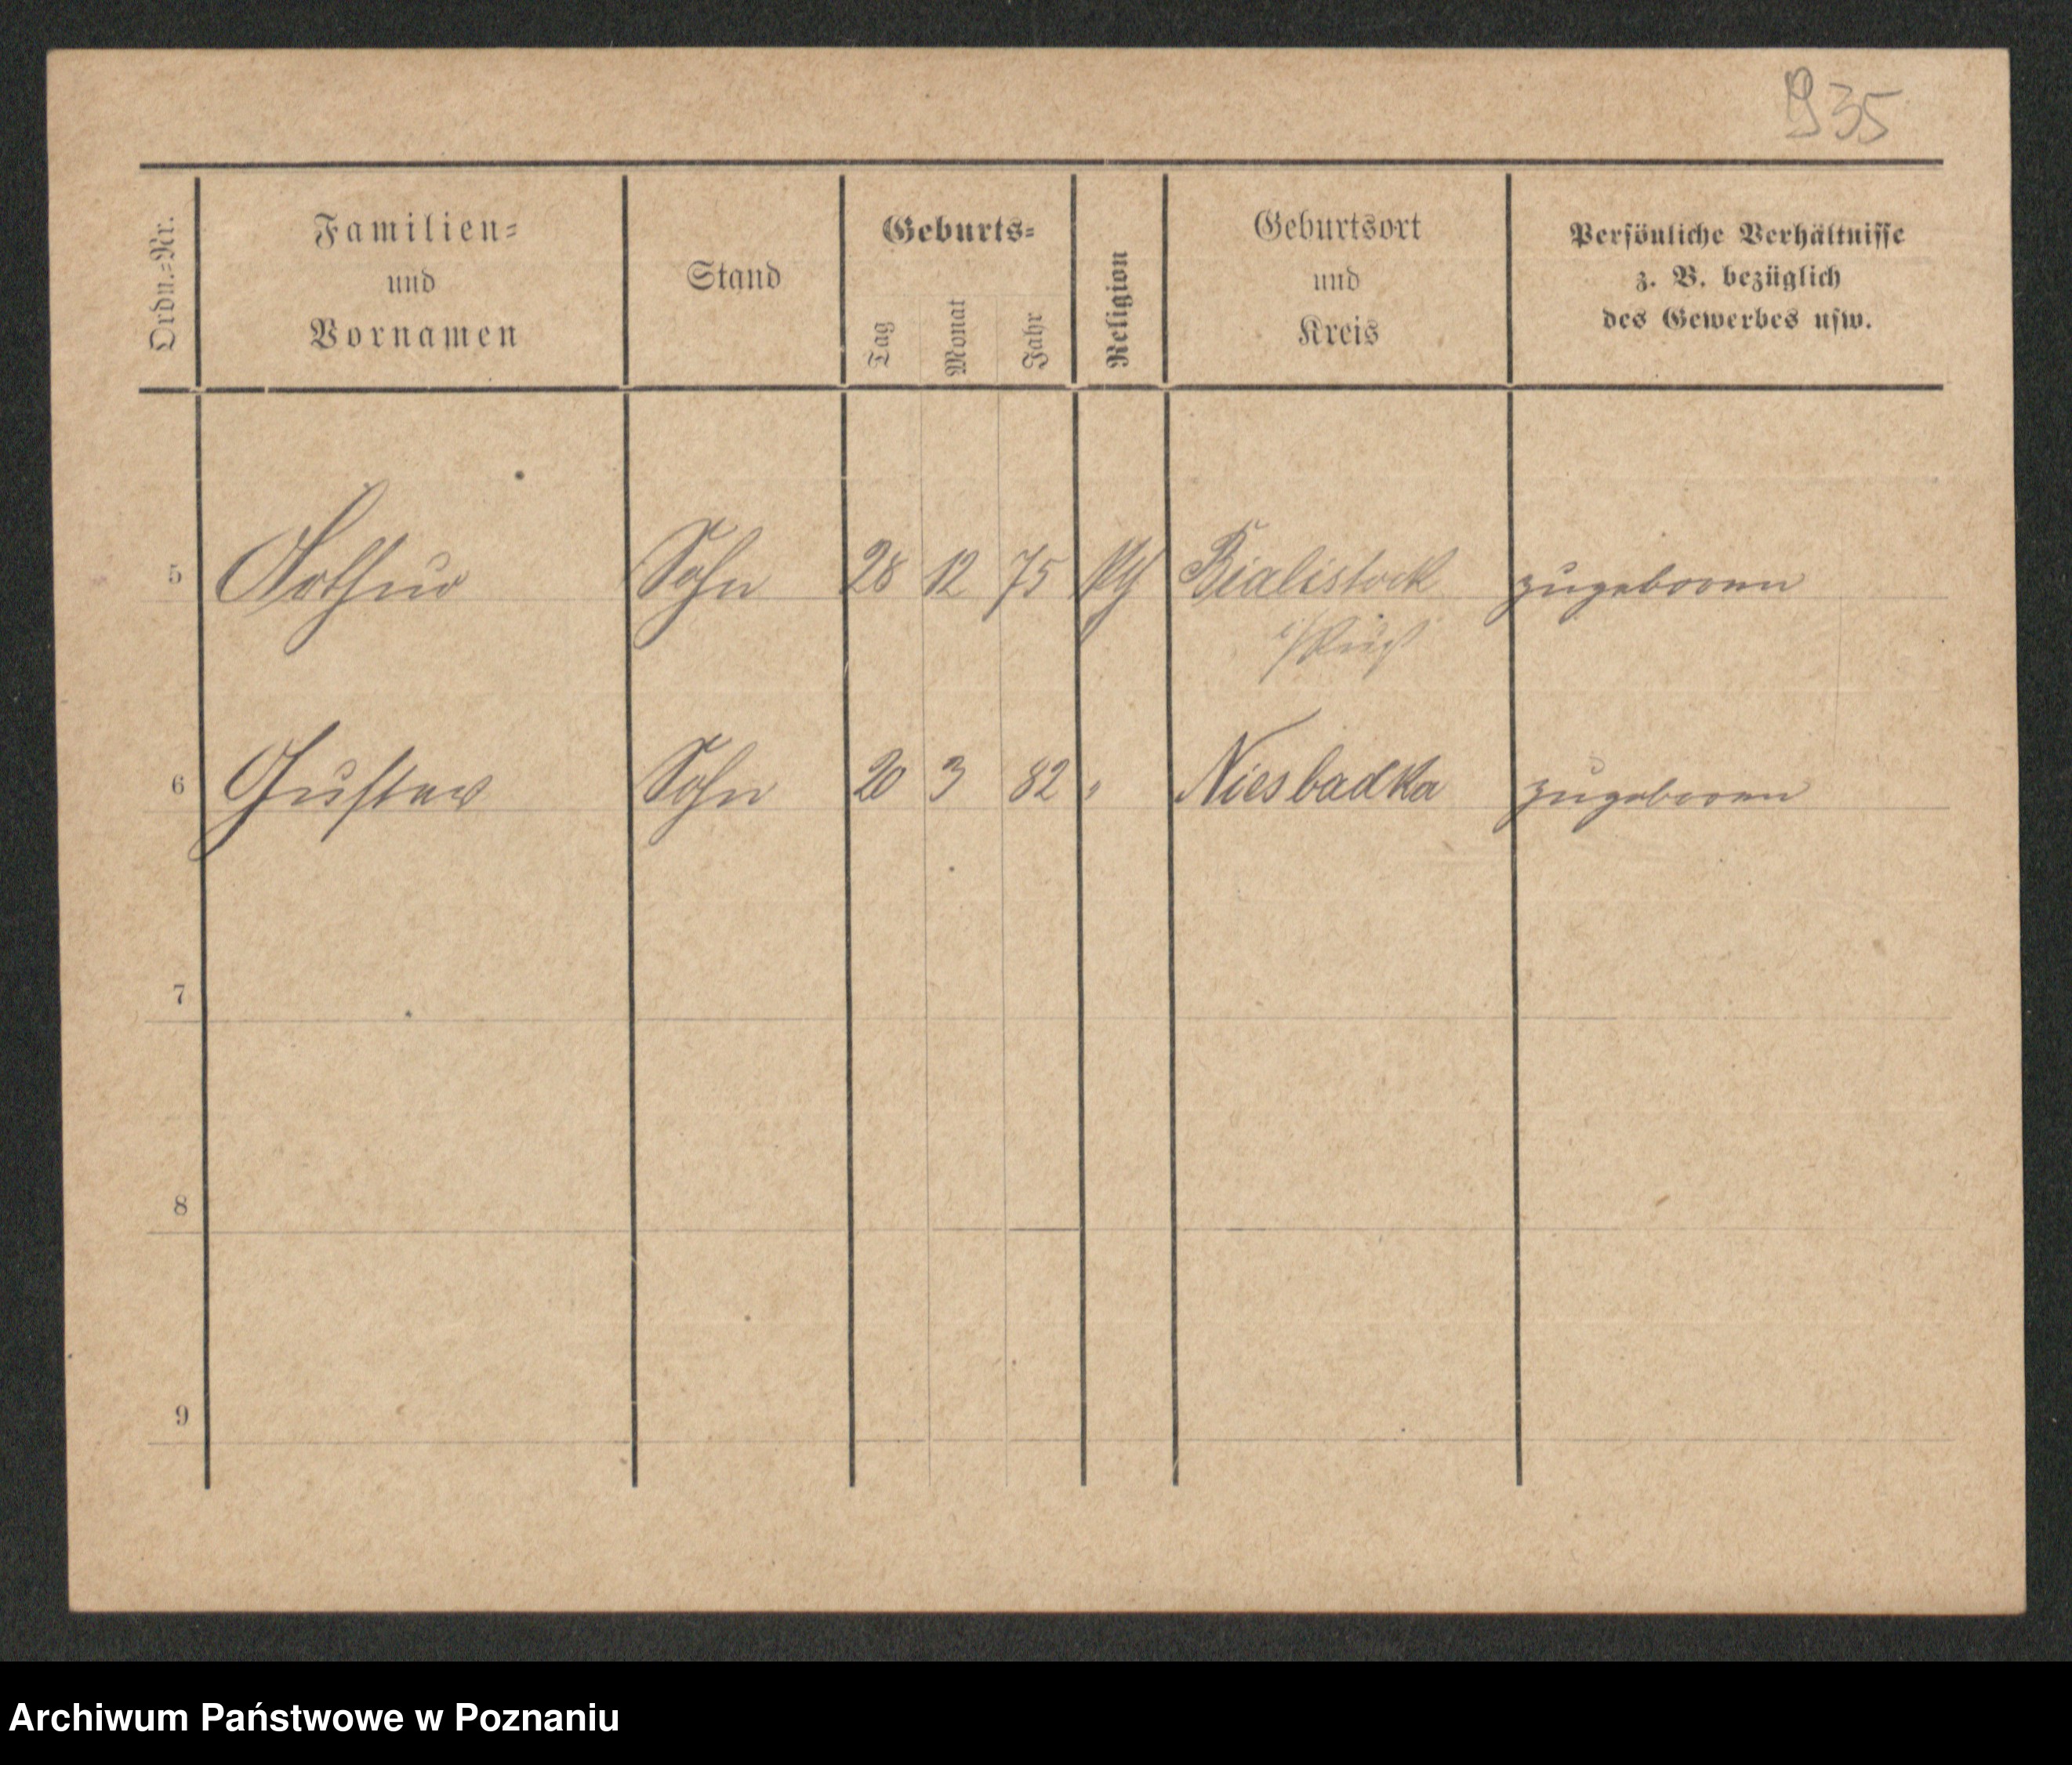 935
Ordn.=Nr.
Familien=
und
Vornamen
Stand
Geburts=
Tag
Monat
Jahr
Religion
Geburtsort
und
Kreis
Persönliche Verhältnisse
z. B. bezüglich
des Gewerbes usw.
5 Arthur Sohn 28 12 75 Bialistock zugeboren
6 Gustav Sohn 20 3 82 " Niesbadka zugeboren
7
8
9
Archiwum Państwowe w Poznaniu